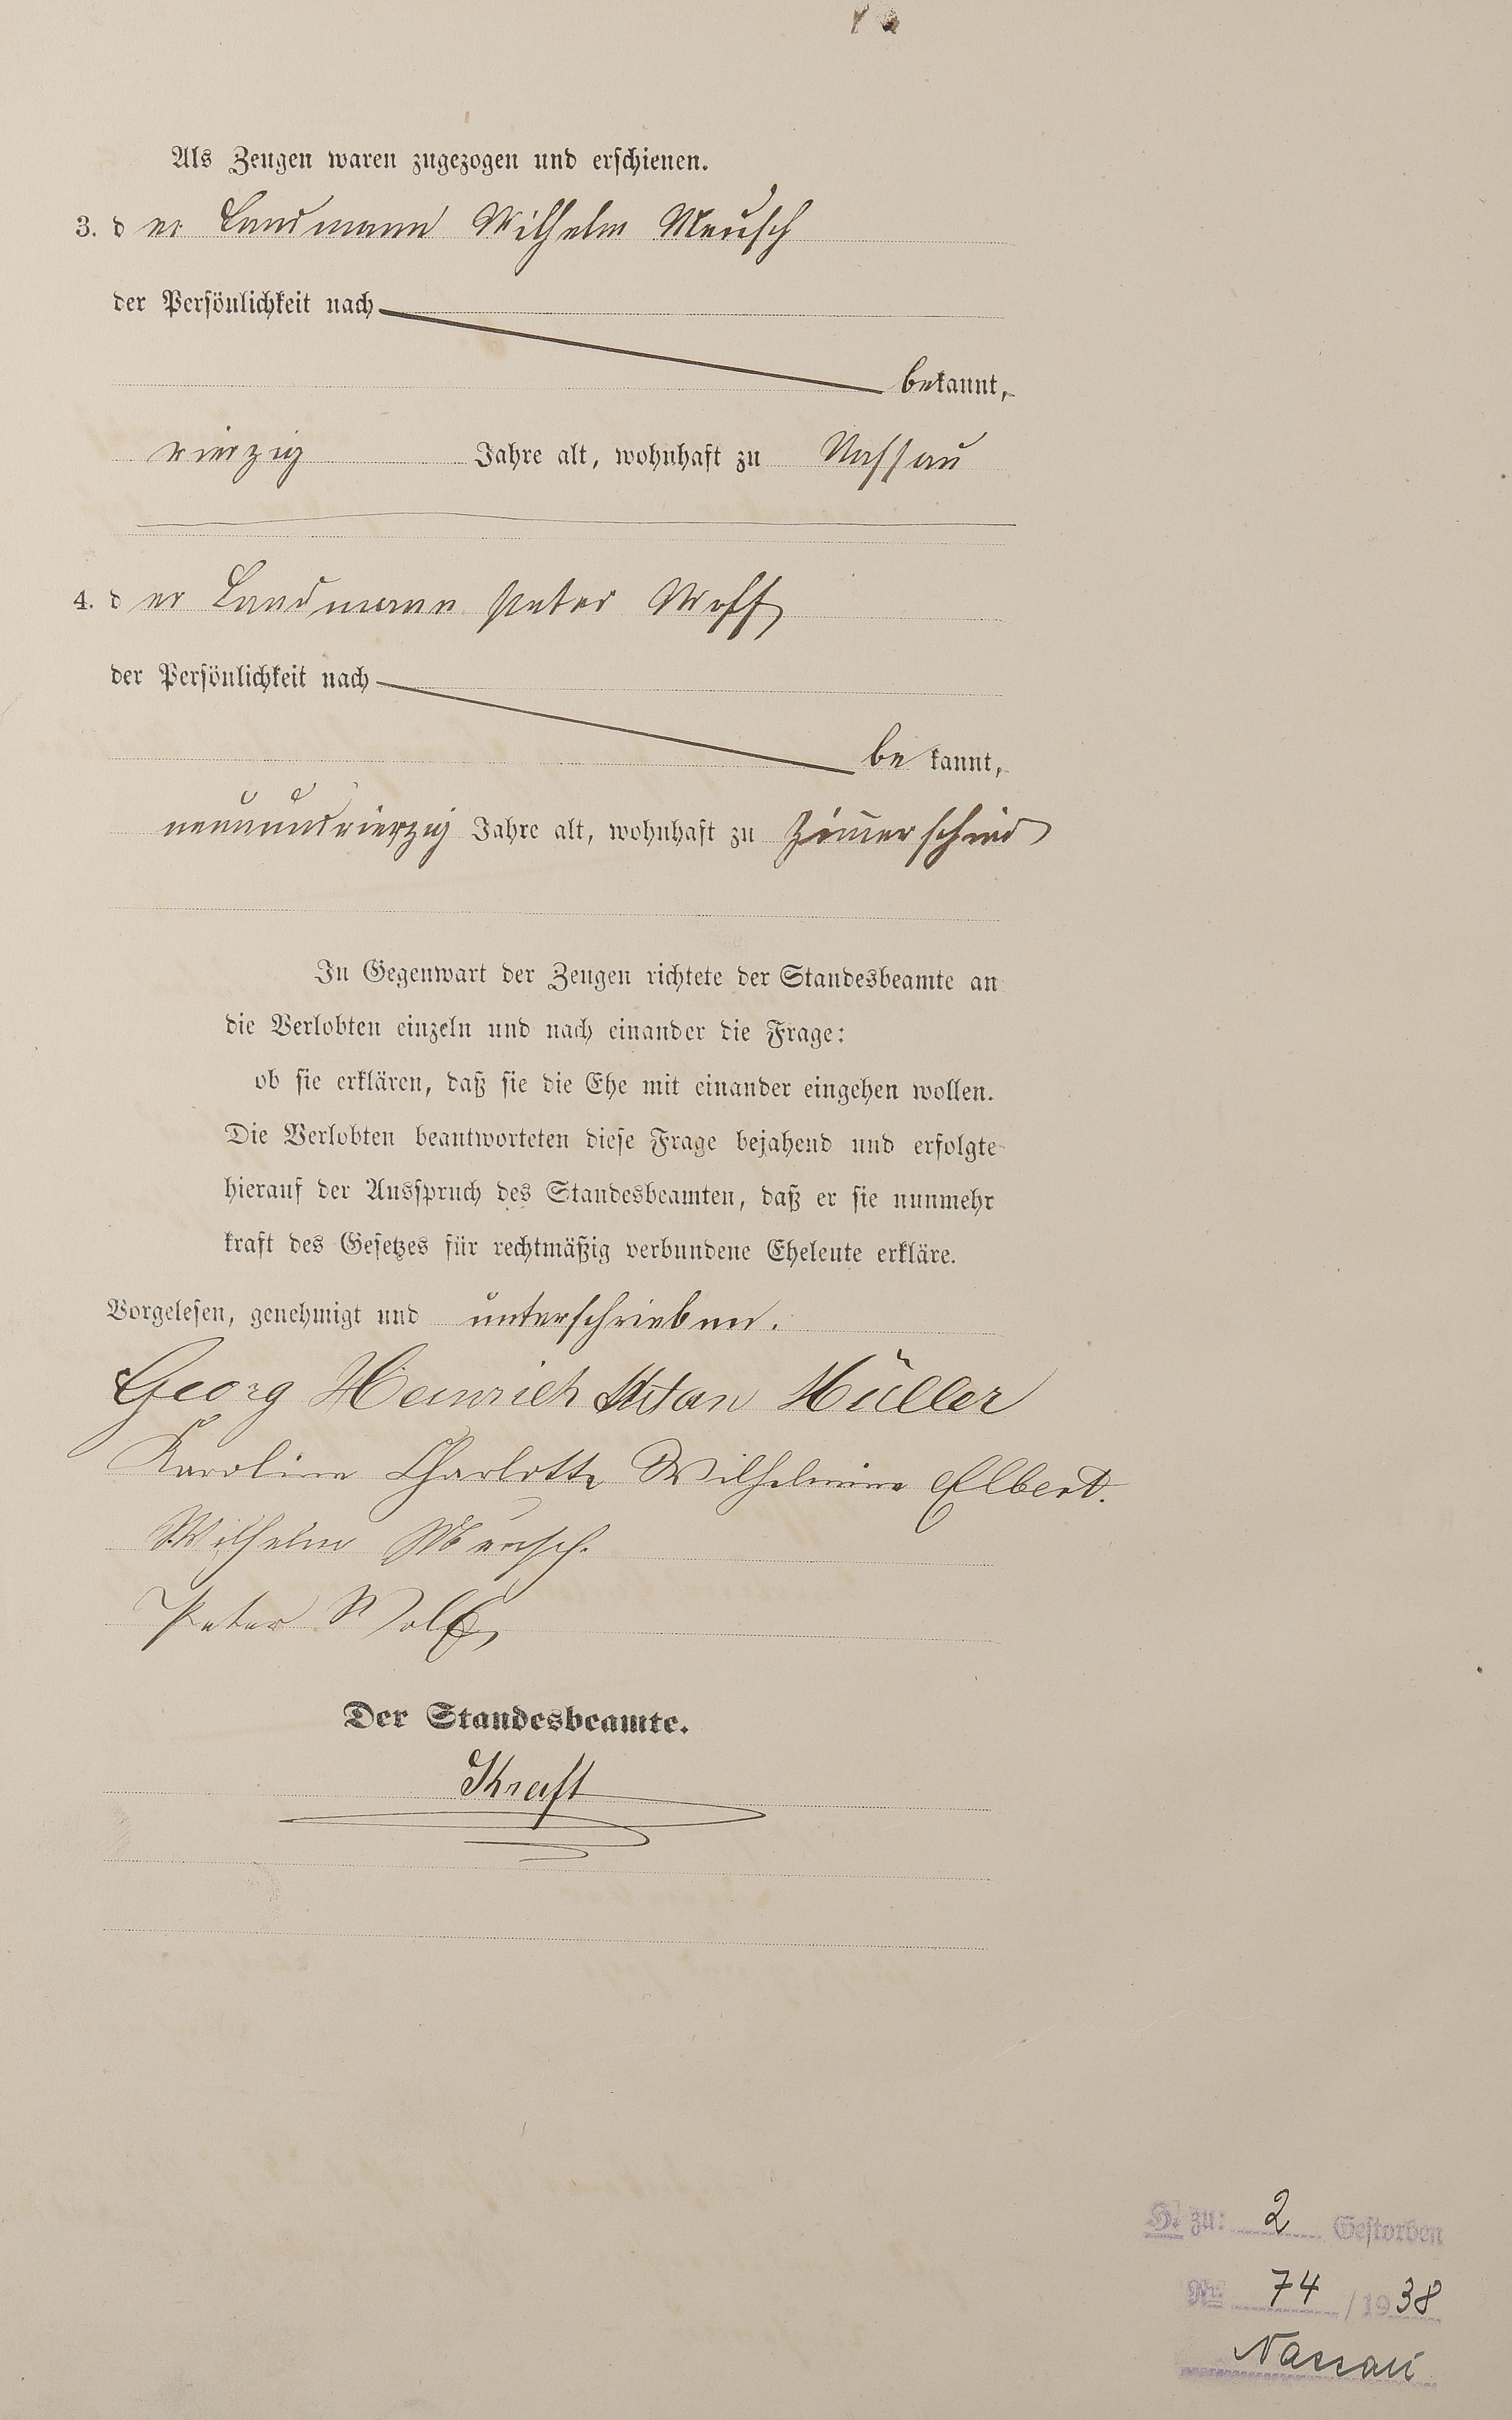 Als Zeugen waren zugezogen und erschienen.
3. der Landmann Wilhelm Meusch
der Persönlichkeit nach
bekannt,
vierzig Jahre alt, wohnhaft zu Nassau
4. der Landmann Peter Wolf
der Persönlichkeit nach
bekannt,
neunundvierzig Jahre alt, wohnhaft zu Zimmerschied
In Gegenwart der Zeugen richtete der Standesbeamte an
die Verlobten einzeln und nach einander die Frage:
ob sie erklären, daß sie die Ehe mit einander eingehen wollen.
Die Verlobten beantworteten diese Frage bejahend und erfolgte
hierauf der Ausspruch des Standesbeamten, daß er sie nunmehr
kraft des Gesetzes für rechtmäßig verbundene Eheleute erkläre.
Vorgelesen, genehmigt und unterschrieben.
Georg Heinrich Müller
Karoline Charlotte Wilhelmine Elbert.
Wilhelm Meusch.
Peter Wolf
Der Standesbeamte.
Kraft
H. zu: 2 Gestorben
Nr. 74 / 1938
Nassau